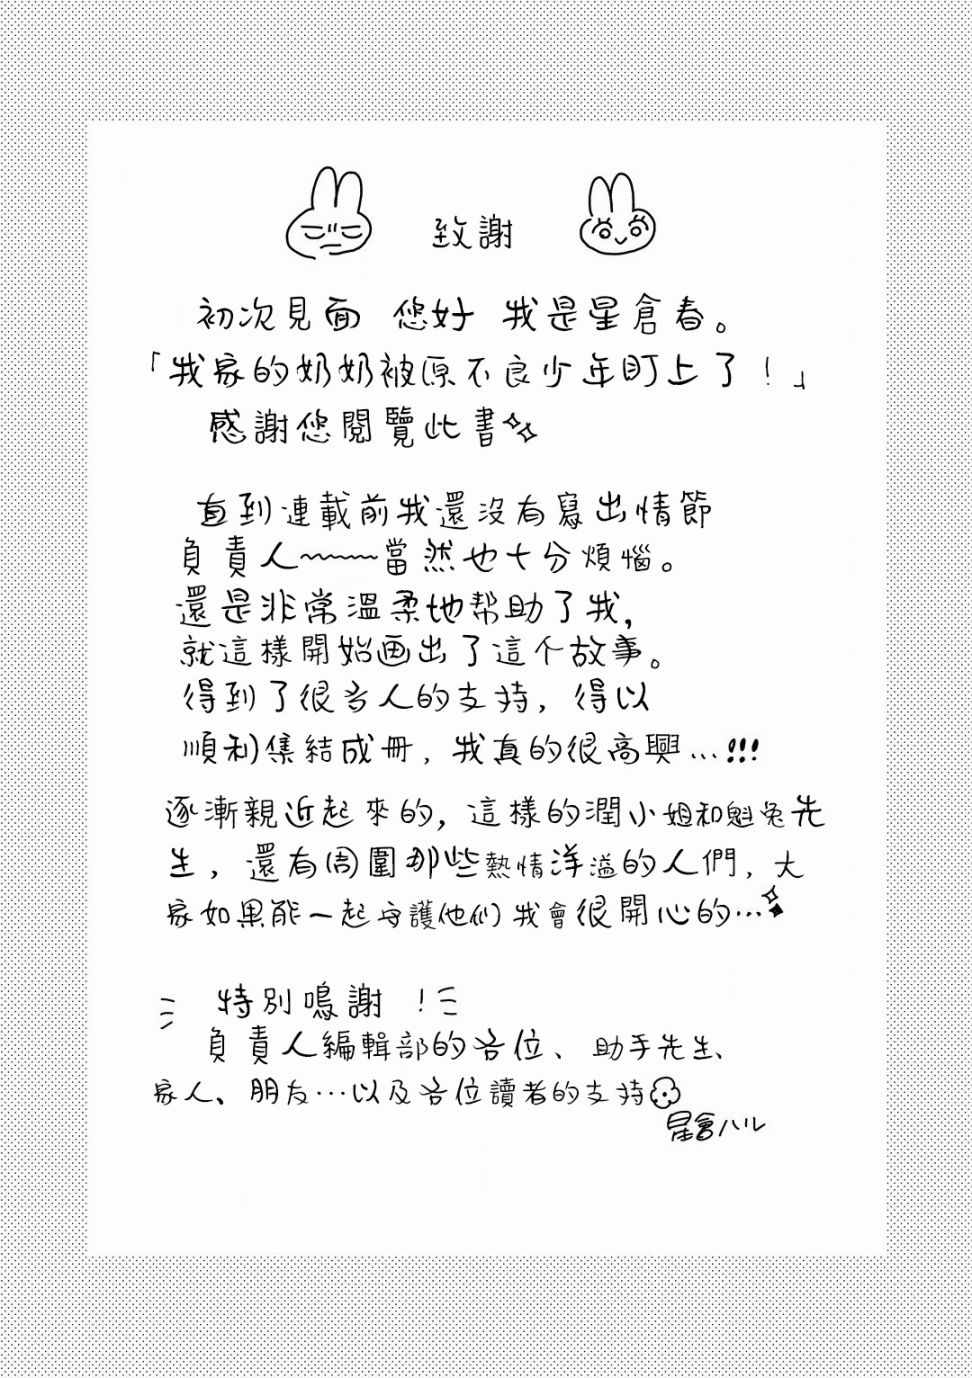 致謝
初次見面 您好 我是星倉春。
「我家的奶奶被原不良少年盯上了！」
感謝您閱覽此書
直到連載前我還沒有寫出情節
負責人~~~~當然也十分煩惱。
還是非常溫柔地帮助了我,
就這樣開始画出了這个故事。
得到了很多人的支持, 得以
順利集結成冊, 我真的很高興…!!!
逐漸親近起來的, 這樣的潤小姐和魁兔先
生, 還有周圍那些熱情洋溢的人們, 大
家如果能一起守護他们 我會很開心的…
特別鳴謝 !
負責人編輯部的各位、助手先生、
家人、朋友……以及各位讀者的支持
星倉ハル